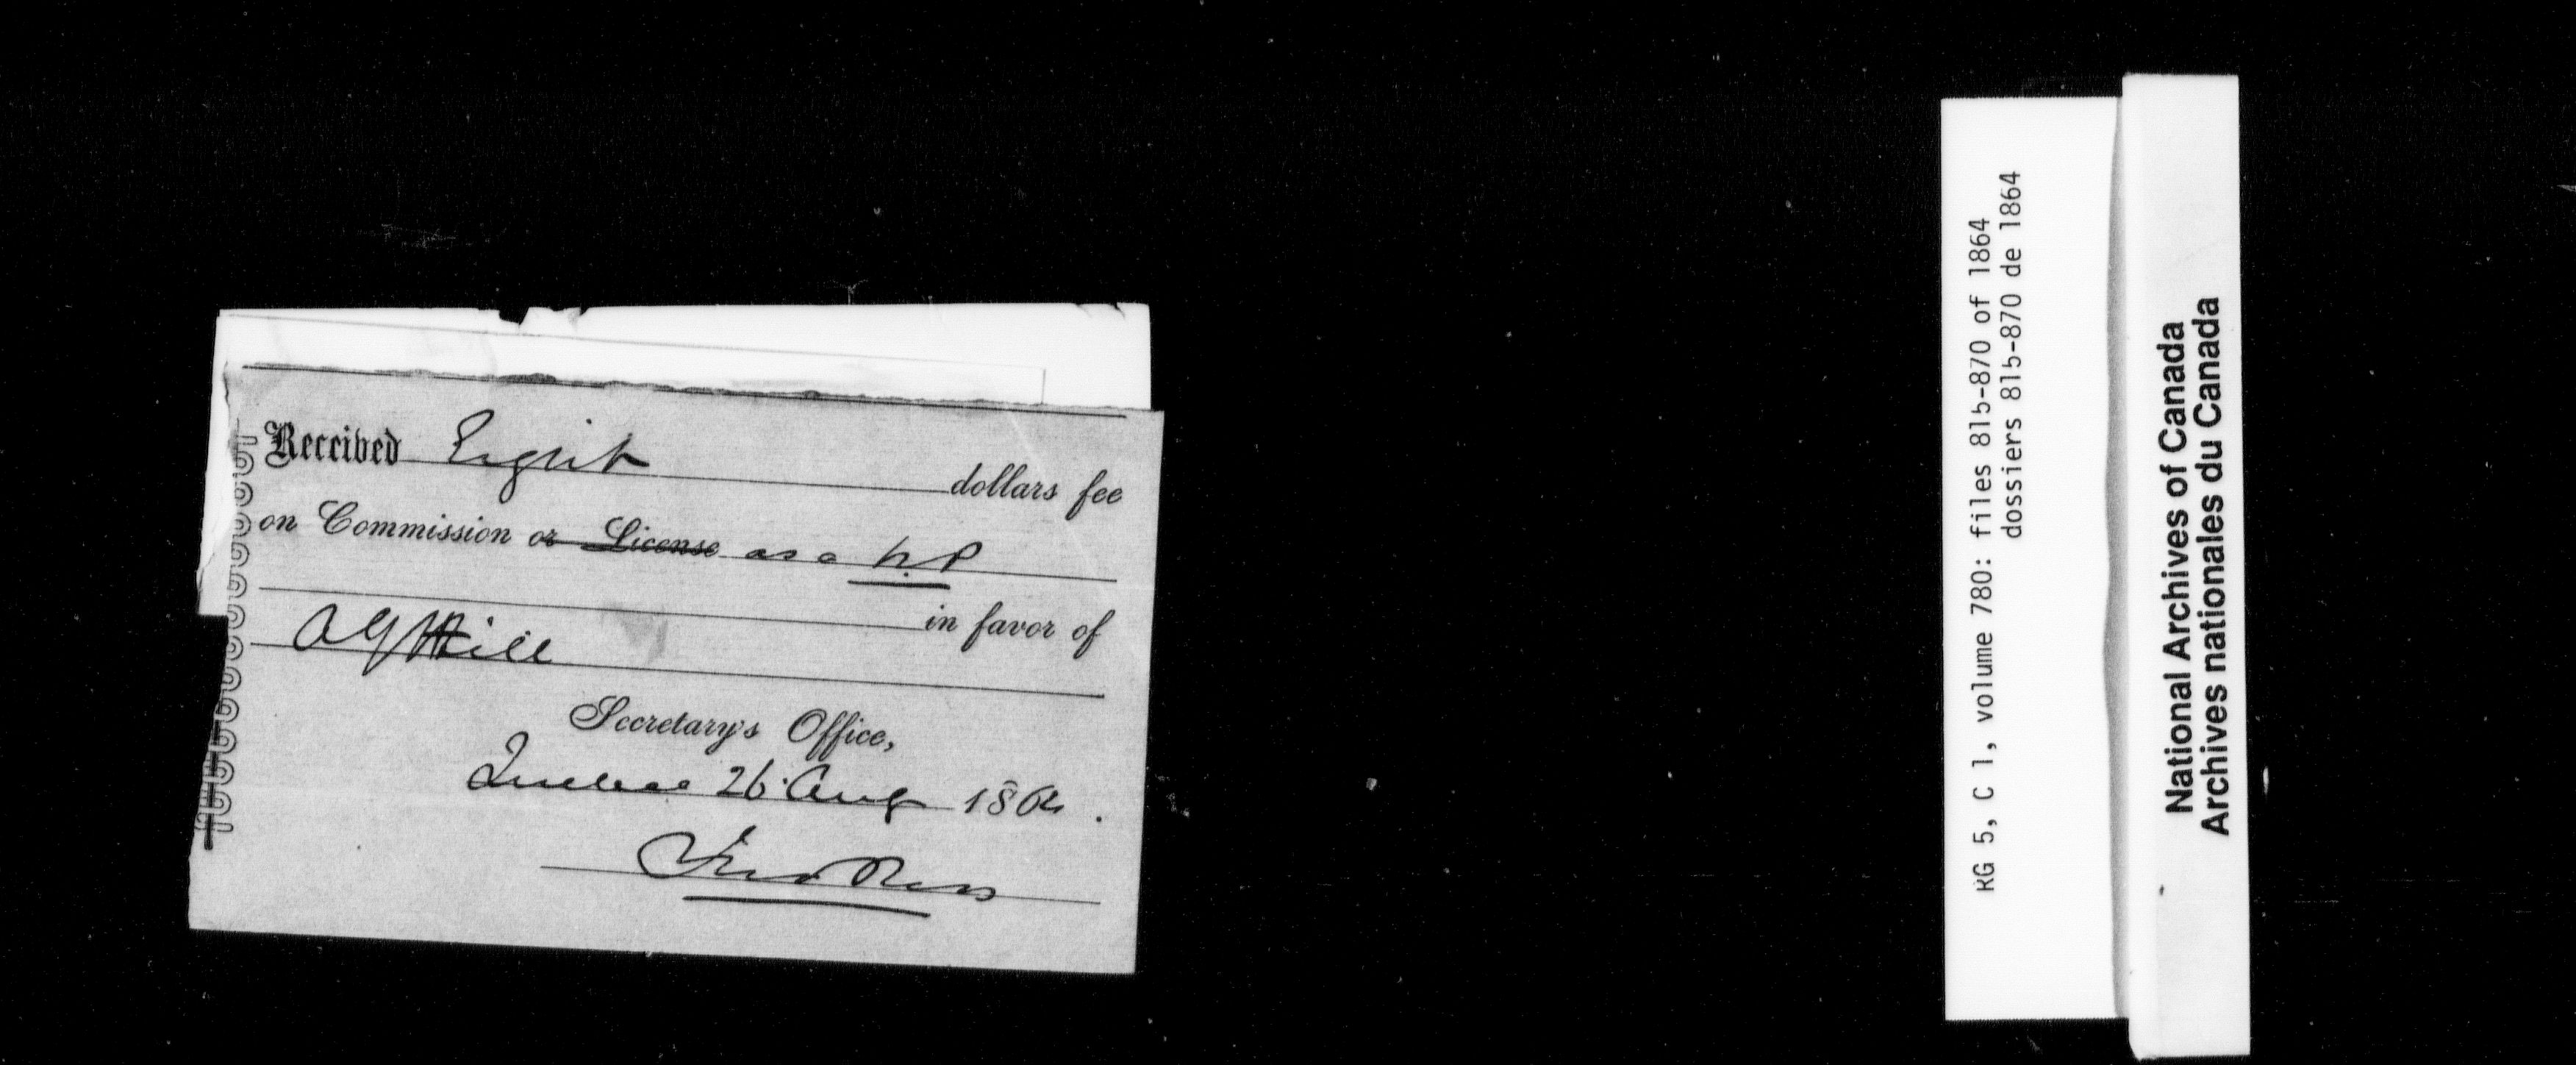 Received Eight dollars fee
on Commission or License as a N.P
in favor of
A G Hill
Secretary's Office,
Quebec 26 Aug 1864.
RG 5, C 1, volume 780: files 815-870 of 1864
dossiers 815-870 de 1864
National Archives of Canada
Archives nationales du Canada